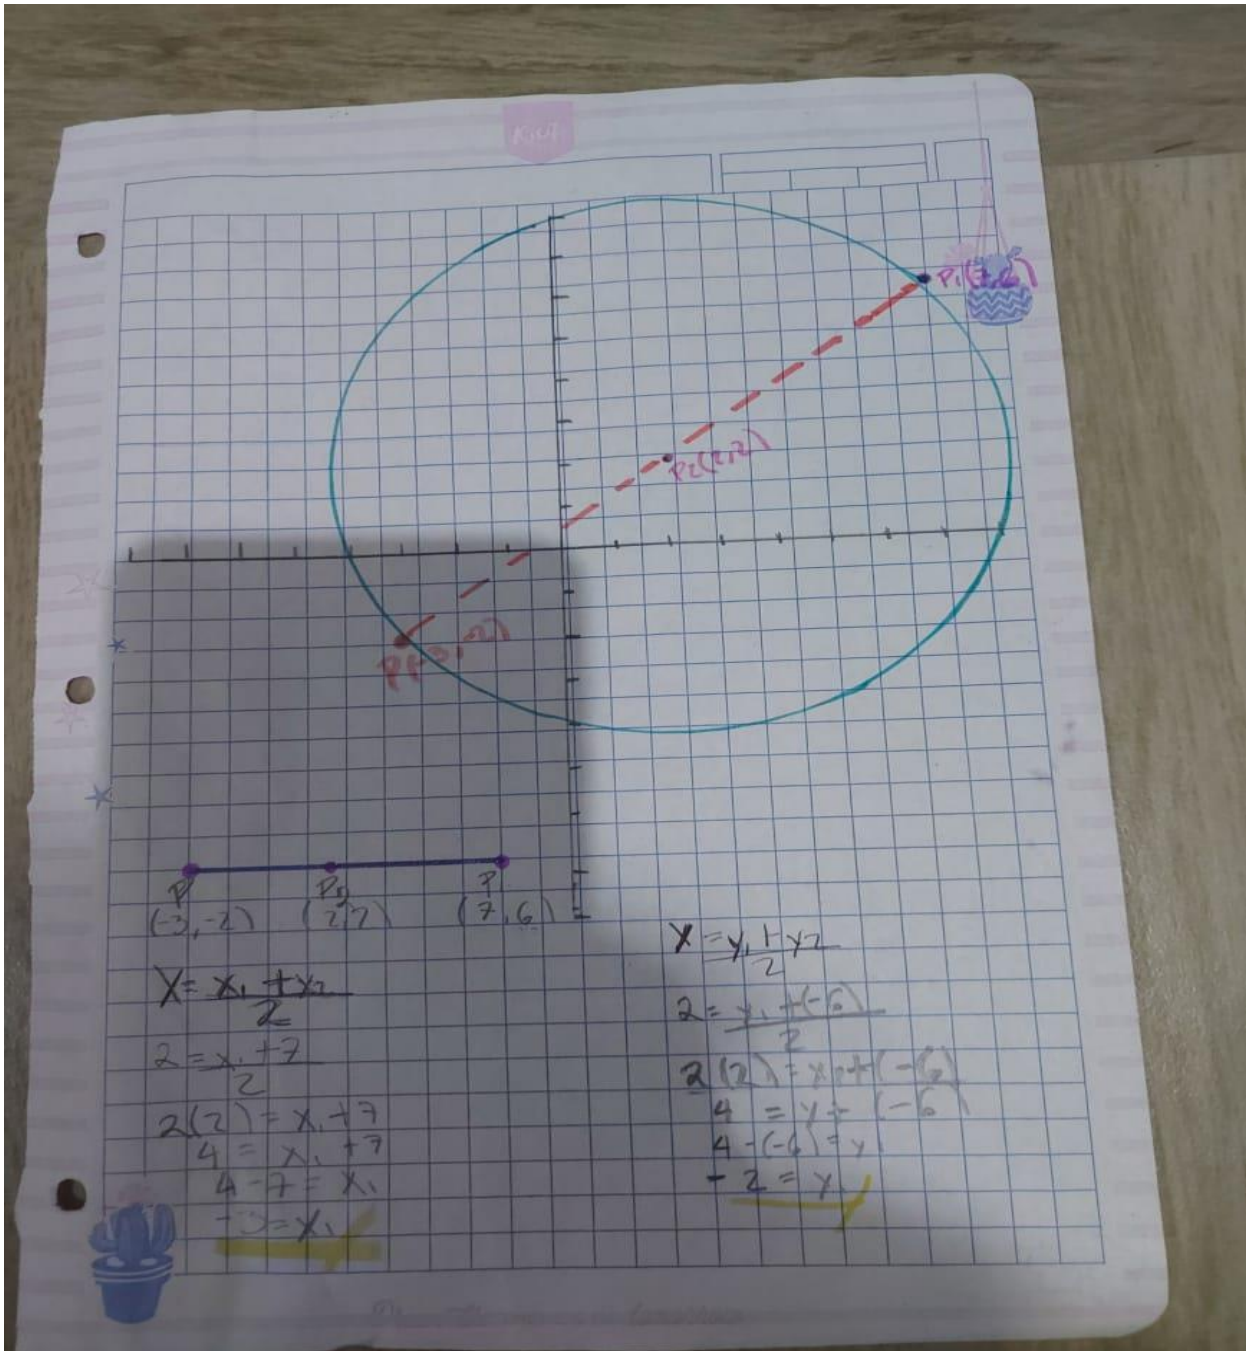 Kiut
P₁(7,6)
P₂(2,2)
P(-3,-2)
P P₂ P
(-3,-2) (2,2) (7,6)
X = x₁ + x₂ / 2
2 = x₁ + 7 / 2
2(2) = x₁ + 7
4 = x₁ + 7
4 - 7 = x₁
-3 = x₁
X = y₁ + y₂ / 2
2 = y₁ + (-6) / 2
2(2) = + (-6)
4 = y + (-6)
4 - (-6) = y
- 2 = y₁